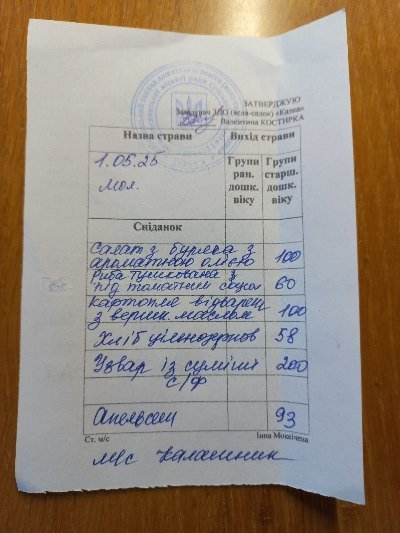 ЗАТВЕРДЖУЮ
Завідувач ЗДО (ясла-садок) «Казка»
Валентина КОСТИРКА
Назва страви Вихід страви
1.05.25
мол.
Групи ран. дошк. віку
Групи старш. дошк. віку
Сніданок
Салат з буряка з
ароматною олією 100
Риба тушкована
під томатним соусом 60
Картопля відварена
з вершк. маслом 100
Хліб цільнозернов 58
Узвар із суміші
с/ф 200
Апельсин 93
Ст. м/с Інна Моксічева
м/с Калашник